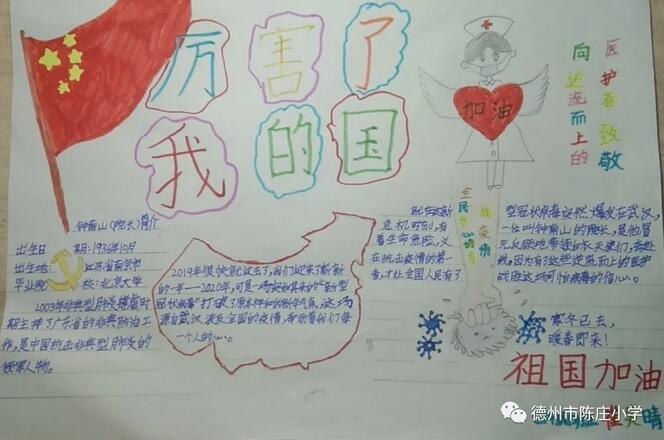 厉害了
我的国
加油
向逆流而上的
医护者致敬
钟南山(院长)简介
出生日期:1936年10月
出生地:江苏省南京市
毕业院校:北京大学
2003年非典型肺炎爆发时
他主持了广东省的非典防治工
作,是中国抗击非典型肺炎的
领军人物。
2019年很快就过去了,我们迎来了崭新
的一年——2020年,可是一场突如其来的“新型
冠状病毒”打破了原本祥和的新年气氛,这场
源自武汉波及全国的疫情,牵动着我们每
一个人的心。
全民齐心协力
战疫情
就在这新
危机时刻,有
着生命危险,义
在抗击疫情的第一
者,才让全国人民有了
型冠状病毒突然爆发在武汉,
一位叫钟南山的院长,是他冒
无反顾地带领白衣天使们,奔赴
我,因为有了这些逆流而上的医护
战胜这场可怕病毒的信心。
寒冬已去,
暖春即来!
祖国加油
德州市陈庄小学